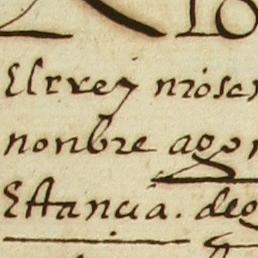 El rrey nr̃o se
nonbre ago
Estancia. deg